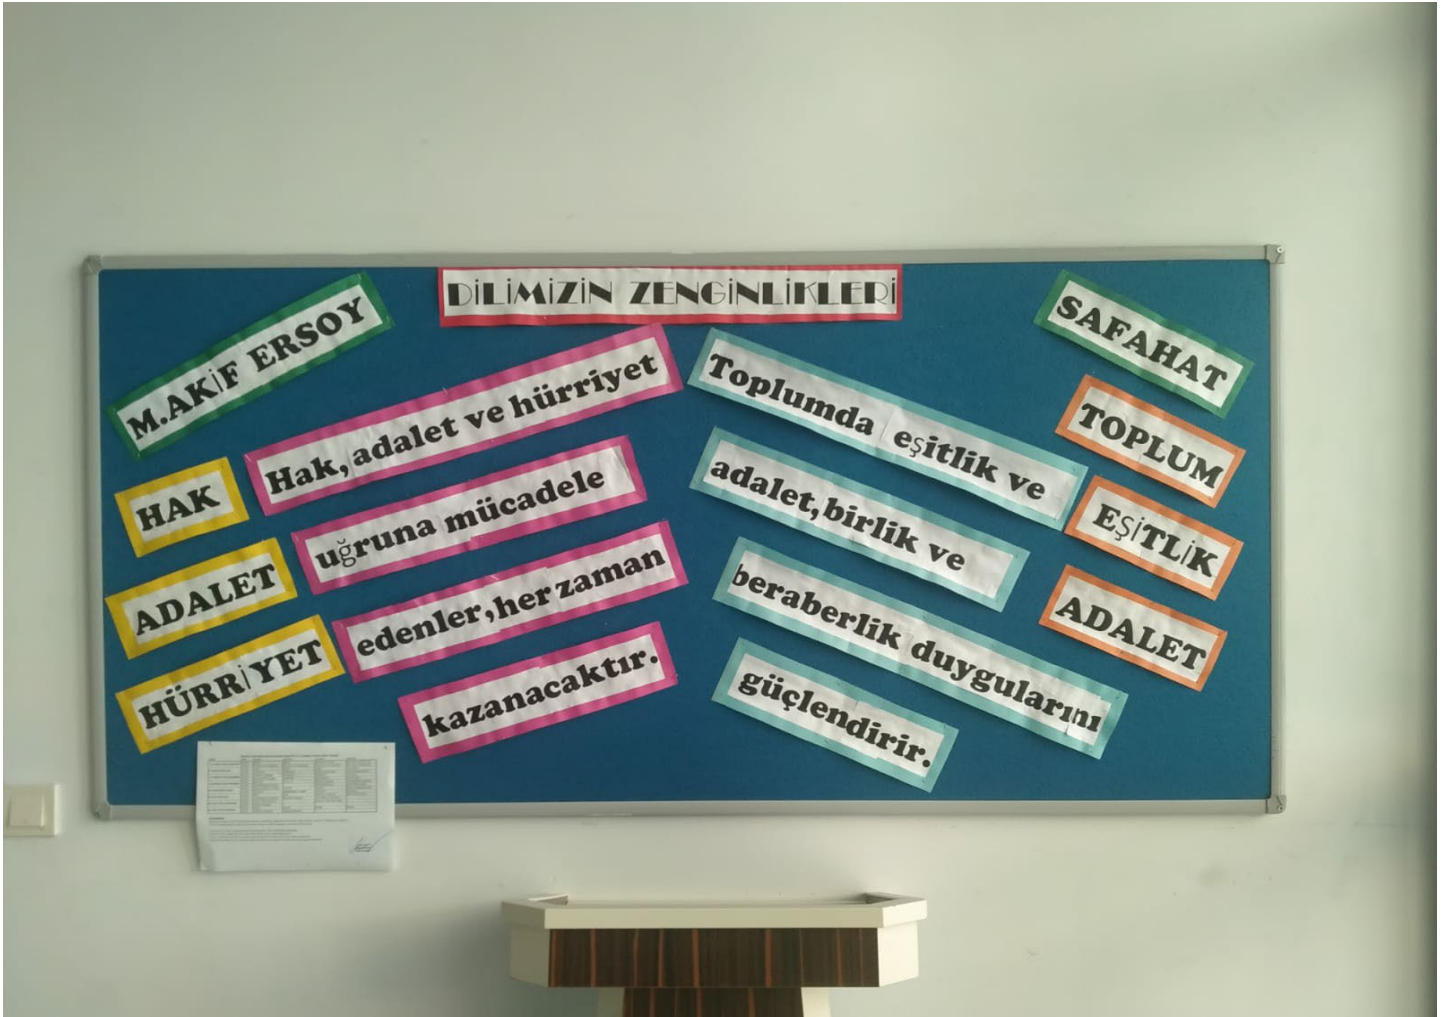 DİLİMİZİN ZENGİNLİKLERİ
M.AKİF ERSOY
HAK
ADALET
HÜRRİYET
Hak, adalet ve hürriyet
uğruna mücadele
edenler, her zaman
kazanacaktır.
Toplumda eşitlik ve
adalet, birlik ve
beraberlik duygularını
güçlendirir.
SAFAHAT
TOPLUM
EŞİTLİK
ADALET